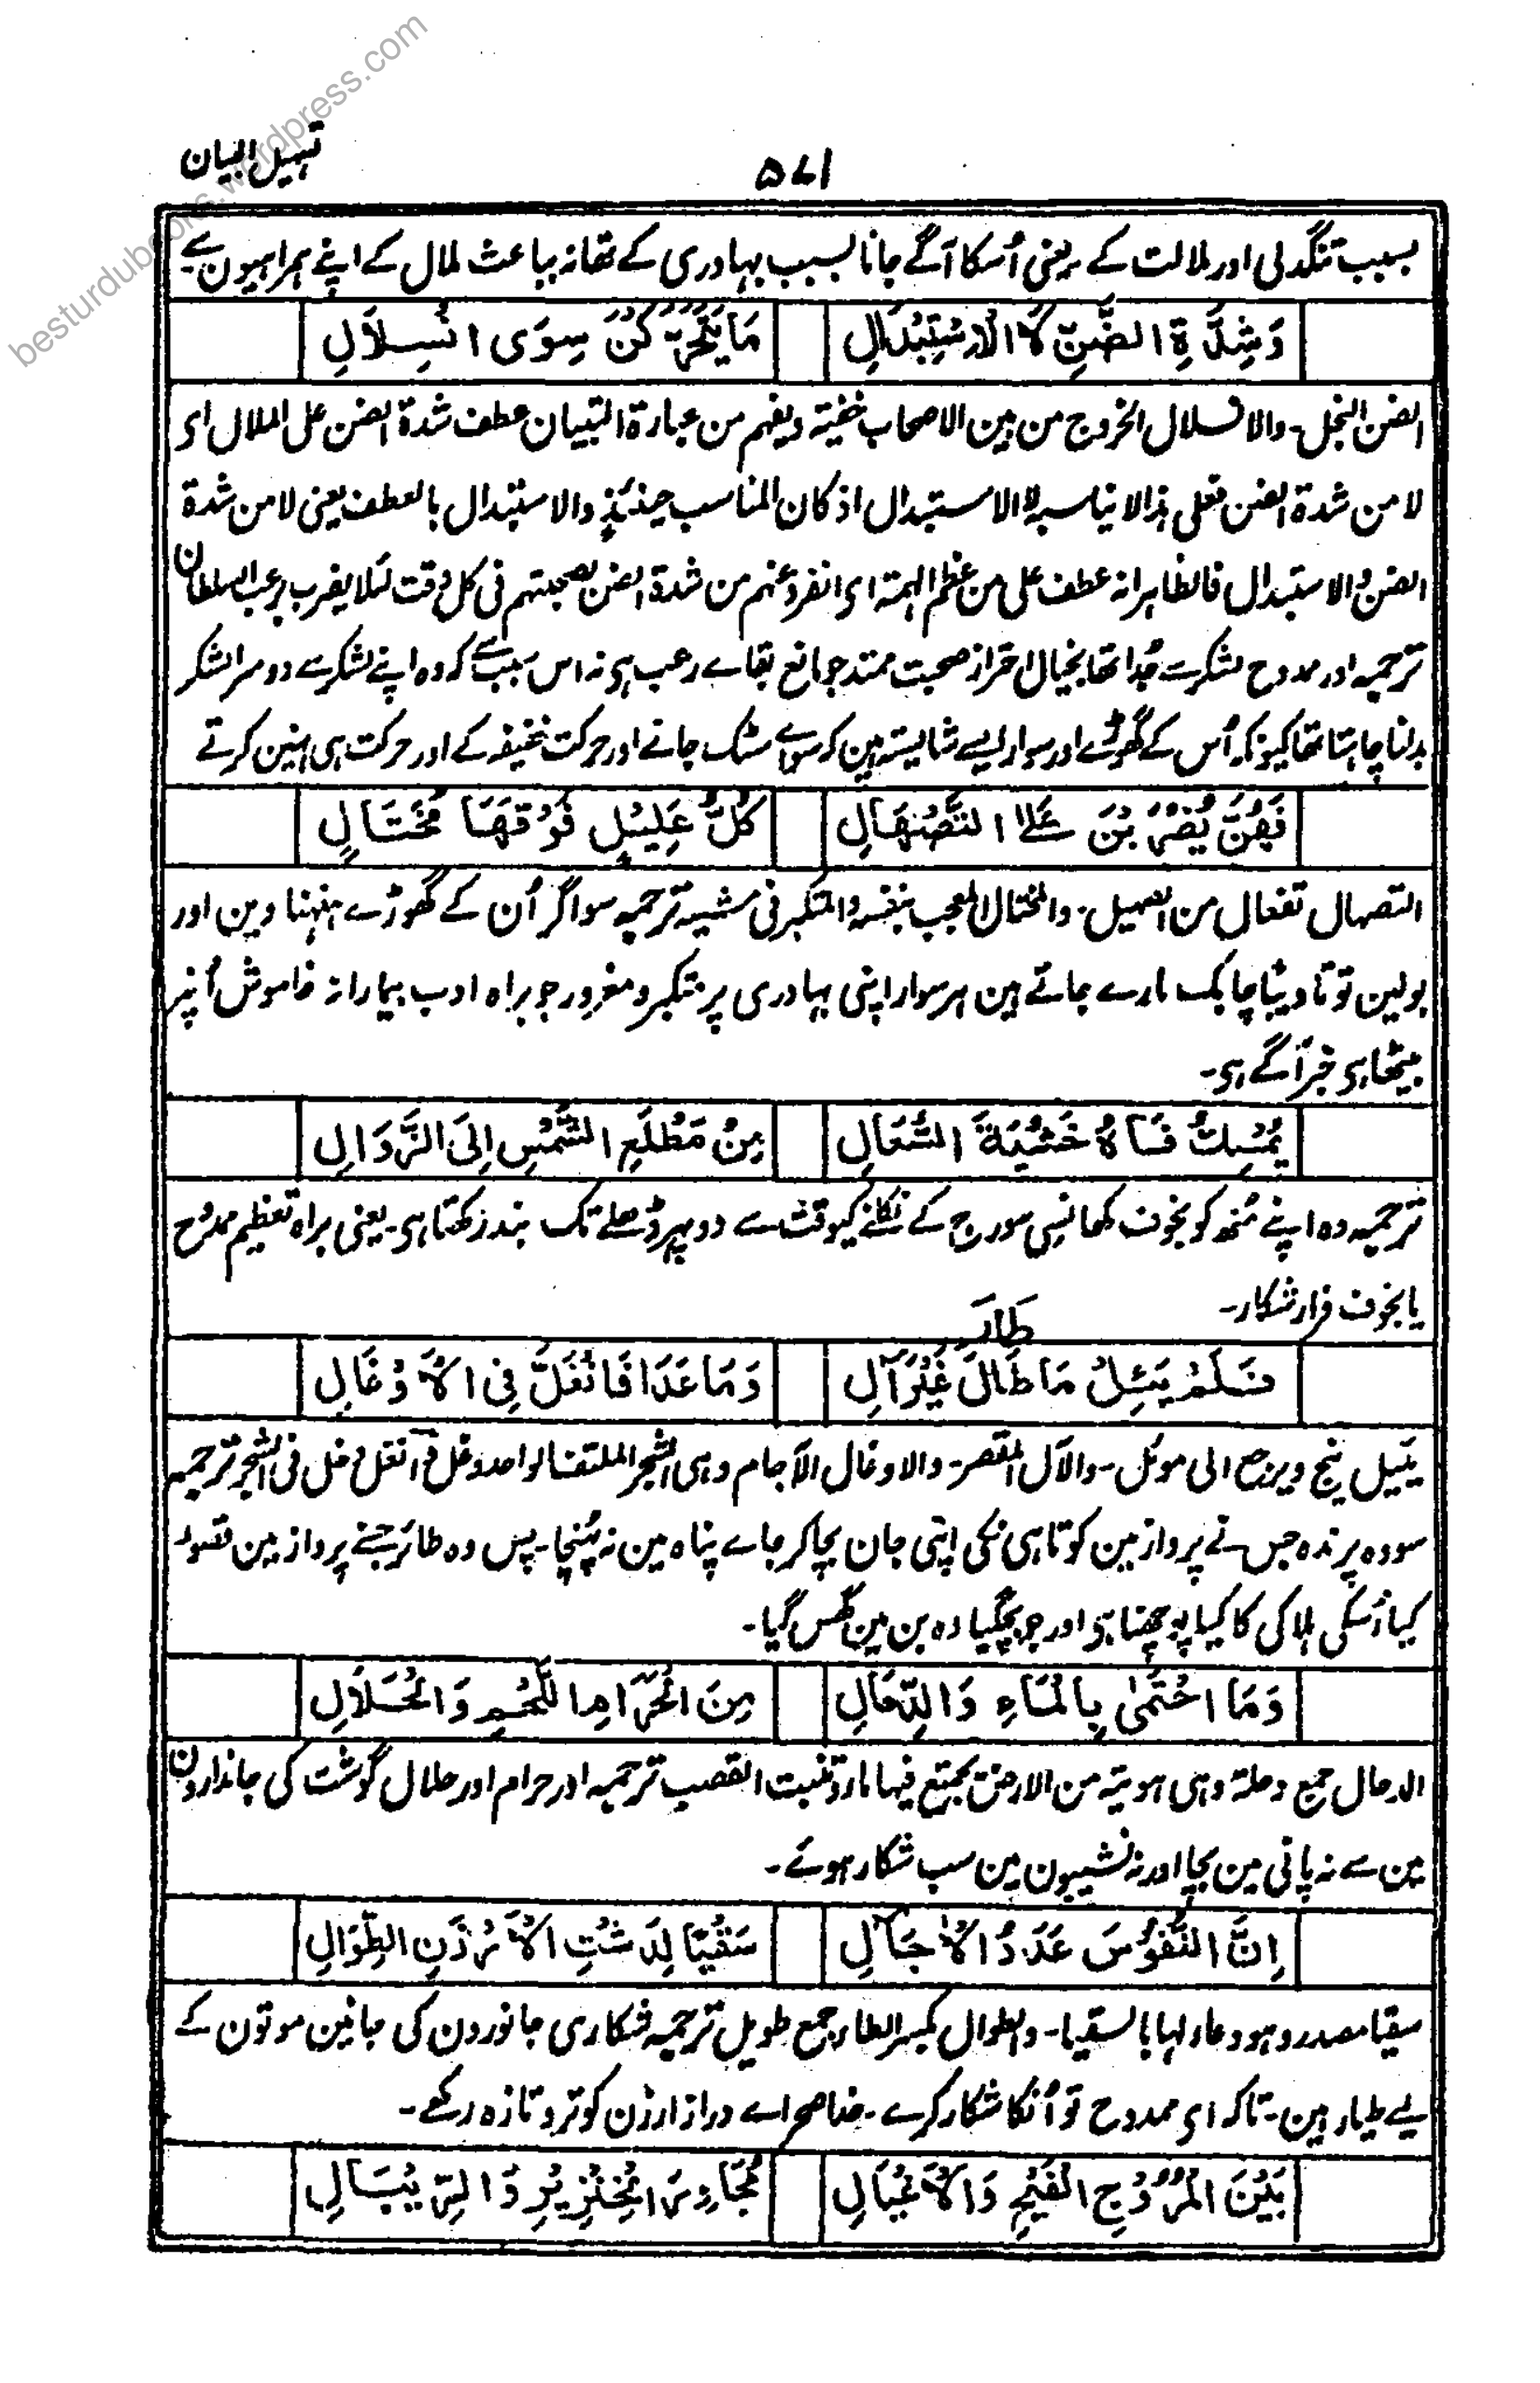 besturdubooks.wordpress.com
تسہیل البیان
۵۷۱
بسبب تنگدلی اور ملالت کے یعنی اُسکا آگے جانا بسبب بہادری کے تھا نہ بباعث ملال کے اپنے ہمراہیون سے
وَشِدَّةِ الضَّنِّ لَا الْاِسْتِبْدَالِ مَا يَتَحَرَّكْنَ سِوَى انْسِلَالِ
الضن البخل۔ والانسلال الخروج من بین الاصحاب خفیة ویفہم من عبارة التبیان عطف شدة الضن علی الملال ای
لا من شدة الضن فعلی ہذا لا یناسبہ لا الاستبدال اذ کان المناسب حینئذٍ والاستبدال بالعطف یعنی لا من شدة
الضن والاستبدال فالظاہر انہ عطف علی من عظم الہمتہ ای انفرد عنہم من شدة الضن بصحبتہم فی کل وقت لئلا یقرب رعب السلطان
ترجمہ اور ممدوح لشکر سے جُدا تھا بخیال احتراز صحبت ممتد جو مانع بقاے رعب ہی نہ اس سبب سے کہ وہ اپنے لشکر سے دوسرا لشکر
بدلنا چاہتا تھا کیونکہ اُس کے گھوڑے اور سوار ایسے شایستہ ہین کہ سواے سٹک جانے اور حرکت خفیفہ کے اور حرکت ہی نہین کرتے
فَهُنَّ يُضْرَبْنَ عَلَى التَّصْهَالِ كُلُّ عَلِيْلٍ فَوْقَهَا مُخْتَالِ
التصہال تفعال من الصہیل۔ والمختال المعجب بنفسہ والمتکبر فی مشیہ ترجمہ سو اگر اُن کے گھوڑے ہنہناوین اور
بولین تو تادیباً چابک مارے جاتے ہین ہر سوار اپنی بہادری پر متکبر و مغرور جو براہ ادب بیمارانہ خاموش اُنپر
بیٹھا ہی خبر آگے ہی۔
يُمْسِكُ فَاهُ خَشْيَةَ السُّعَالِ مِنْ مَطْلَعِ الشَّمْسِ اِلَى الزَّوَالِ
ترجمہ وہ اپنے مُنھ کو بخوف کھانسی سورج کے نکلنے کیوقت سے دوپہر ڈھلے تک بند رکھتا ہی۔ یعنی براہ تعظیم ممدوح
یا بخوف فرار شکار۔
طَارَ
فَلَمْ يَئِلْ مَا طَالَ غَيْرَ آلِ وَمَا عَدَا فَانْغَلَّ فِى الْاَدْغَالِ
یئیل ینج ویرجع الی موئل۔ والآل المقصر۔ والادغال الآجام وہی الشجر الملتف الواحد دغل وانغل دخل فی الشجر ترجمہ
سو وہ پرندہ جس نے پرواز مین کوتاہی نکی اپنی جان بچا کر جاے پناہ مین نہ پہُنچا۔ پس وہ طائر جسنے پرواز مین قصور
کیا اُسکی ہلاکی کا کیا پوچھنا ہی اور جو بچگیا وہ بن مین گھس گیا۔
وَمَا احْتَمٰى بِالْمَاءِ وَالدِّحَالِ مِنَ الْحَرَامِ اللَّحْمِ وَالْحَلَالِ
الدحال جمع دحلة وہی ہویة من الارض یجتمع فیہا ماء وتنبت القصب ترجمہ اور حرام اور حلال گوشت کی جاندارون
مین سے نہ پانی مین بچا اور نہ نشیبون مین سب شکار ہوئے۔
اِنَّ النُّفُوْسَ عَدَدُ الْاٰجَالِ سَقْيًا لِدَشْتِ الْاَرْزَنِ الطِّوَالِ
سقیا مصدر وہو دعاء لہا بالسقیا۔ والطوال بکسر الطاء جمع طویل ترجمہ شکاری جانورون کی جانین موتون کے
لیے طیار ہین۔ تاکہ ای ممدوح تو اُنکا شکار کرے۔ خدا صحراے دراز ارزن کو تر و تازہ رکھے۔
بَيْنَ الْمُرُوْجِ الْفَيْحِ وَالْاَغْيَالِ مُجَاوِرَ الْخِنْزِيْرِ وَالرِّئْبَالِ